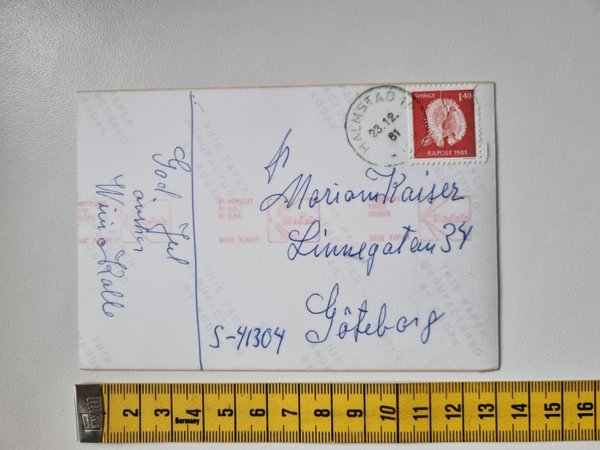 God Jul
önskar
Winn o Kalle
HALMSTAD
23.12.
81
SVERIGE 1.40
JULPOST 1981
Fr
Mariam Kaiser
Linnegatan 34
S-41304 Göteborg
THIS PAPER
MANUFACTURED
BY KODAK
2 3 4 5 6 7 8 9 10 11 12 13 14 15 16
Germany